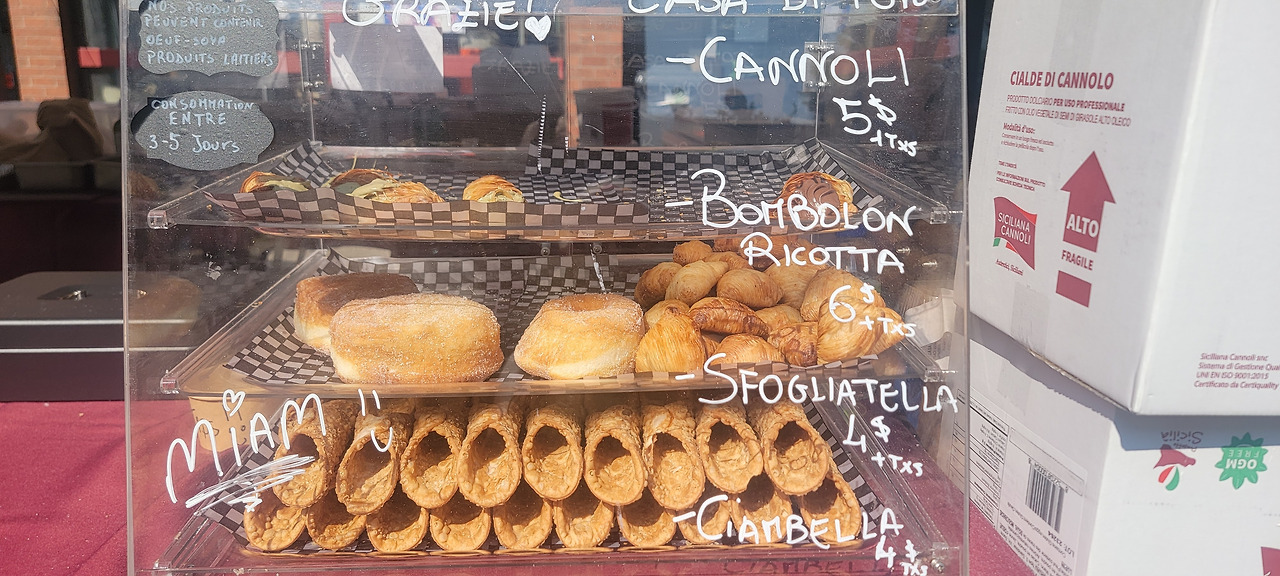 NOS PRODUITS
PEUVENT CONTENIR
OEUF-SOYA
PRODUITS LAITIERS
CONSOMMATION
ENTRE
3-5 JOURS
GRAZIE!
CASA DI
-CANNOLI
5$
+TXS
-BOMBOLON
RICOTTA
6$
+TXS
-SFOGLIATELLA
4$
+TXS
-CIAMBELLA
4$
TXS
MIAM !!
CIALDE DI CANNOLO
PRODOTTO DOLCIARIO PER USO PROFESSIONALE
FRITTO CON OLIO VEGETALE DI SEMI DI GIRASOLE ALTO OLEICO
Modalità d'uso:
SICILIANA
CANNOLI
ALTO
FRAGILE
Siciliana Cannoli snc
Sistema di Gestione Qua
UNI EN ISO 9001:2015
Certificato da Certiquality
Sicilia
OGM
FREE